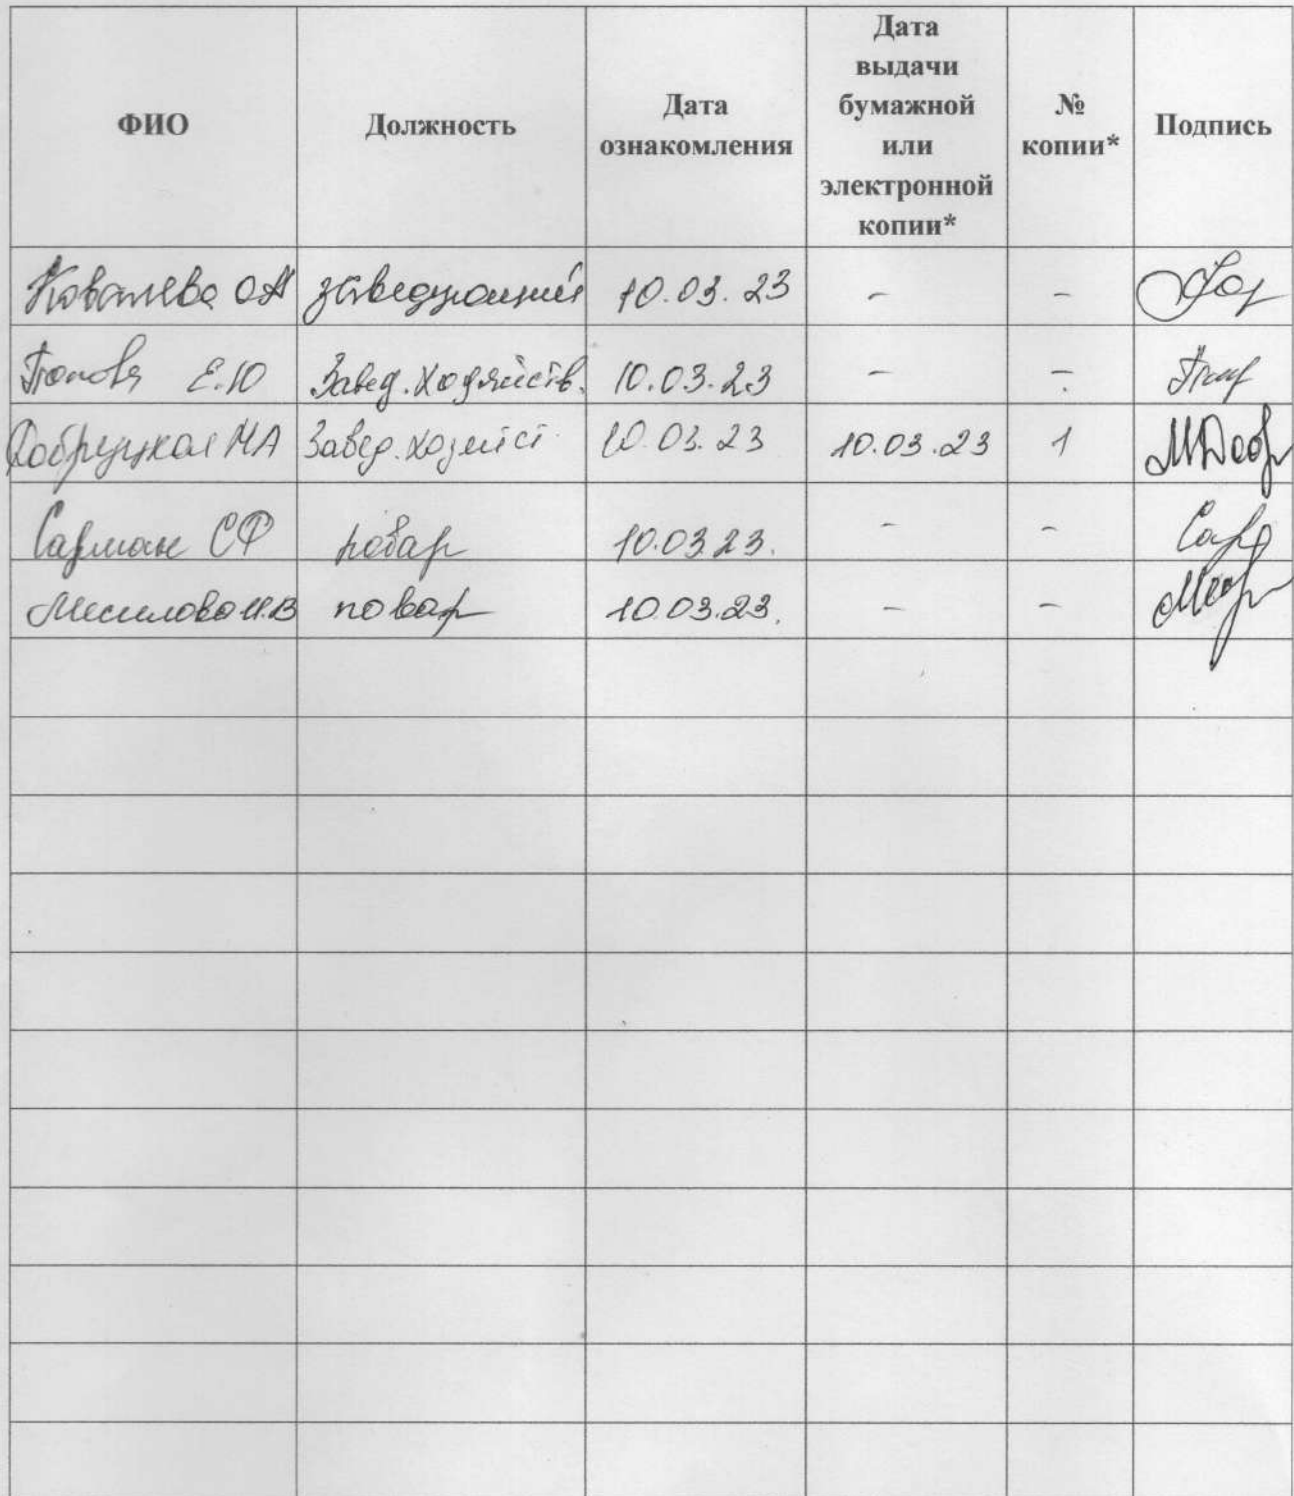 ФИО
Должность
Дата
ознакомления
Дата
выдачи
бумажной
или
электронной
копии*
№
копии*
Подпись
Ковалева ОА заведующий 10.03.23 – –
Попова Е.Ю Завед. Хозяйств. 10.03.23 – –
МА Завед. хозяйст. 10.03.23 10.03.23 1 МДобр
Сарман СФ повар 10.03.23. – – Сар
И.В повар 10.03.23. – –